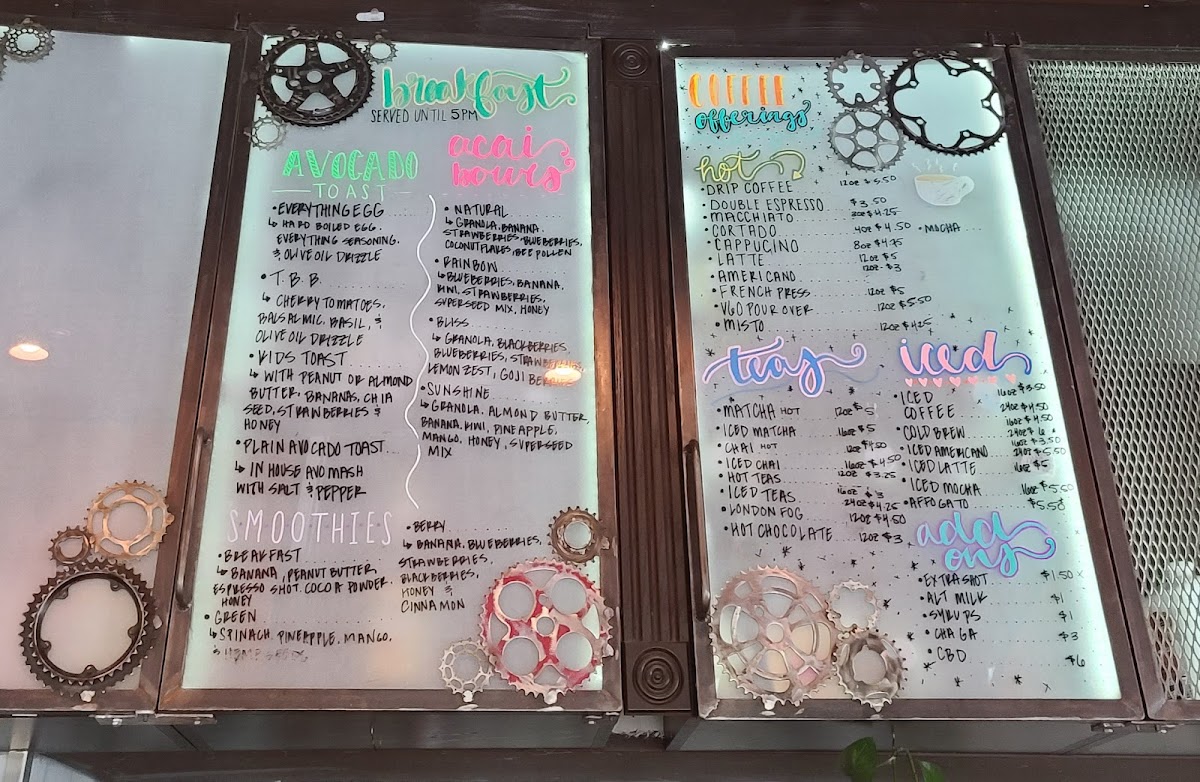 breakfast
SERVED UNTIL 5PM
AVOCADO
TOAST
• EVERYTHING EGG
↳ HARD BOILED EGG.
EVERYTHING SEASONING.
& OLIVE OIL DRIZZLE
• T. B. B.
↳ CHERRY TOMATOES,
BALSALMIC, BASIL, &
OLIVE OIL DRIZZLE
• KIDS TOAST
↳ WITH PEANUT OR ALMOND
BUTTER, BANANAS, CHIA
SEED, STRAWBERRIES &
HONEY
• PLAIN AVOCADO TOAST
↳ IN HOUSE AVO MASH
WITH SALT & PEPPER
acai
bowls
• NATURAL
↳ GRANOLA, BANANA,
STRAWBERRIES, BLUEBERRIES,
COCONUT FLAKES, BEE POLLEN
• RAINBOW
↳ BLUEBERRIES, BANANA,
KIWI, STRAWBERRIES,
SUPERSEED MIX, HONEY
• BLISS
↳ GRANOLA, BLACKBERRIES
BLUEBERRIES, STRAWBERRIES
LEMON ZEST, GOJI BERRIES
• SUNSHINE
↳ GRANOLA, ALMOND BUTTER,
BANANA, KIWI, PINEAPPLE,
MANGO, HONEY, SUPERSEED
MIX
SMOOTHIES
• BREAKFAST
↳ BANANA, PEANUT BUTTER,
ESPRESSO SHOT. COCOA POWDER.
HONEY
• GREEN
↳ SPINACH, PINEAPPLE, MANGO,
& HEMP SEEDS
• BERRY
↳ BANANA, BLUEBERRIES,
STRAWBERRIES,
BLACKBERRIES,
HONEY &
CINNAMON
COFFEE
offerings
hot
• DRIP COFFEE 12oz $3.50
• DOUBLE ESPRESSO $3.50
• MACCHIATO 3oz $4.25
• CORTADO 4oz $4.50 • MOCHA
• CAPPUCINO 8oz $4.75
• LATTE 12oz $5
• AMERICANO 12oz $3
• FRENCH PRESS 12oz $5
• V60 POUR OVER 12oz $5.50
• MISTO 12oz $4.25
teas
• MATCHA HOT 12oz $5
• ICED MATCHA 16oz $5
• CHAI HOT 12oz $4.50
• ICED CHAI 16oz $4.50
• HOT TEAS 12oz $3.25
• ICED TEAS 16oz $3
24oz $4.25
• LONDON FOG 12oz $4.50
• HOT CHOCOLATE 12oz $3
iced
• ICED 16oz $3.50
COFFEE 24oz $4.50
• COLD BREW 16oz $4.50
24oz $6
• ICED AMERICANO 16oz $3.50
24oz $5.50
• ICED LATTE 16oz $5
• ICED MOCHA 16oz $5.50
• AFFOGATO $5.50
add
ons
• EXTRA SHOT $1.50
• ALT MILK $1
• SYRUPS $1
• CHAGA $3
• CBD $6